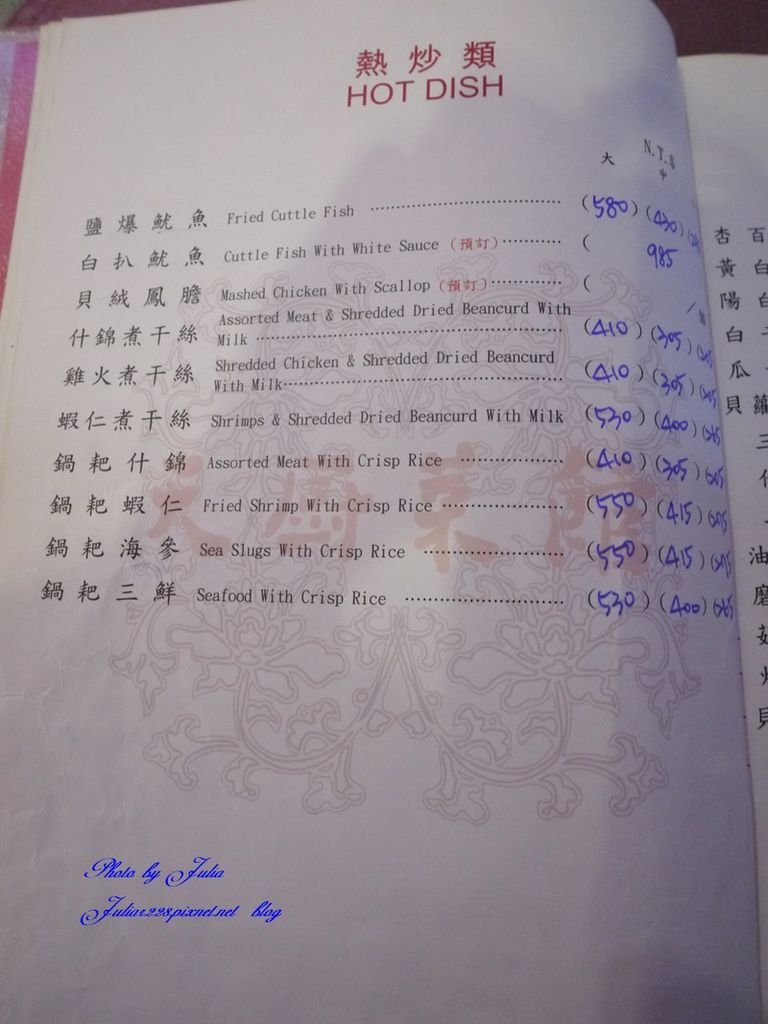 熱炒類
HOT DISH
N.T.$
大 中
鹽爆魷魚 Fried Cuttle Fish (580) (430)
白扒魷魚 Cuttle Fish With White Sauce (預訂) ( 985
貝絨鳳膽 Mashed Chicken With Scallop (預訂) (
什錦煮干絲 Assorted Meat & Shredded Dried Beancurd With
Milk (410) (305)
雞火煮干絲 Shredded Chicken & Shredded Dried Beancurd
With Milk (410) (305)
蝦仁煮干絲 Shrimps & Shredded Dried Beancurd With Milk (530) (400)
鍋耙什錦 Assorted Meat With Crisp Rice (410) (305)
鍋耙蝦仁 Fried Shrimp With Crisp Rice (550) (415)
鍋耙海參 Sea Slugs With Crisp Rice (550) (415)
鍋耙三鮮 Seafood With Crisp Rice (530) (400)
天廚菜館
杏 百
黃 白
陽 白
白
瓜
貝 蘿
三
油
磨
Photo by Julia
Juliar228.pixnet.net blog